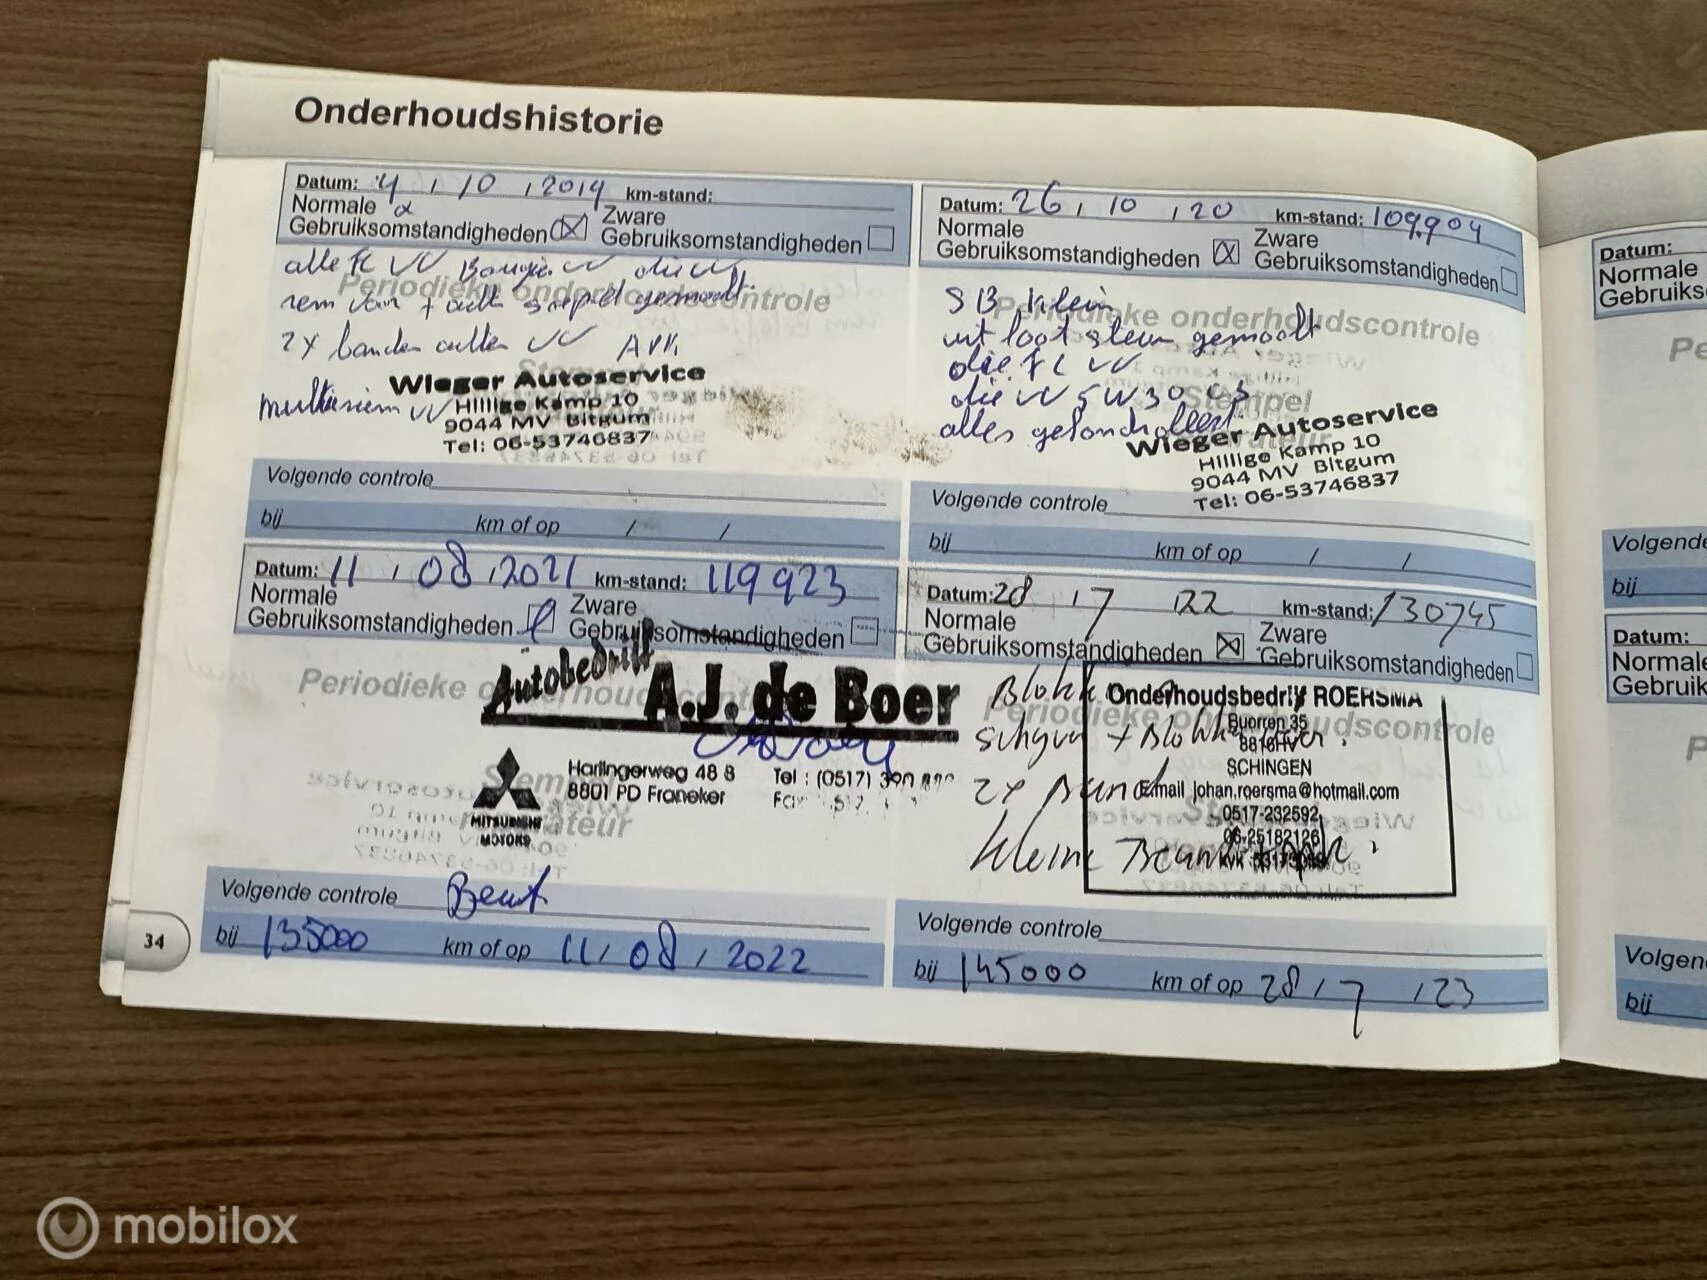 Onderhoudshistorie
Datum: 4 / 10 / 2019 km-stand:
Normale
Gebruiksomstandigheden
Zware
Gebruiksomstandigheden
alle FC VV Bougie VV olie VV
rem voor + achter gemaakt.
Periodieke onderhoudscontrole
2x banden achter VV
multiriem VV
Wieger Autoservice
Hillige Kamp 10
9044 MV Bitgum
Tel: 06-53746837
Volgende controle
bij km of op / /
Datum: 26 / 10 / 20 km-stand: 109.904
Normale
Gebruiksomstandigheden
Zware
Gebruiksomstandigheden
SB klein
Periodieke onderhoudscontrole
uit laat steun gemaakt
olie FC VV
olie VV 5W30 C3
Stempel
alles gekontroleert
Wieger Autoservice
Hillige Kamp 10
9044 MV Bitgum
Tel: 06-53746837
Volgende controle
bij km of op / /
Datum: 11 / 08 / 2021 km-stand: 119923
Normale
Gebruiksomstandigheden
Zware
Gebruiksomstandigheden
Periodieke onderhoudscontrole
Autobedrijf A.J. de Boer
Harlingerweg 48 8
8801 PD Franeker
Tel : (0517) 390
MITSUBISHI
MOTORS
Volgende controle Beurt
bij 135000 km of op 11 / 08 / 2022
Datum: 28 / 7 22 km-stand: 130745
Normale
Gebruiksomstandigheden
Zware
Gebruiksomstandigheden
Periodieke onderhoudscontrole
Onderhoudsbedrijf ROERSMA
Buorren 35
8816HV
SCHINGEN
Email johan.roersma@hotmail.com
0517-232592
06-25182126
2x Band
kleine
Volgende controle
bij 145000 km of op 28 / 7 / 23
34
Datum:
Normale
Gebruiks
Pe
Volgende
bij
Datum:
Normale
Gebruik
P
Volgen
bij
mobilox